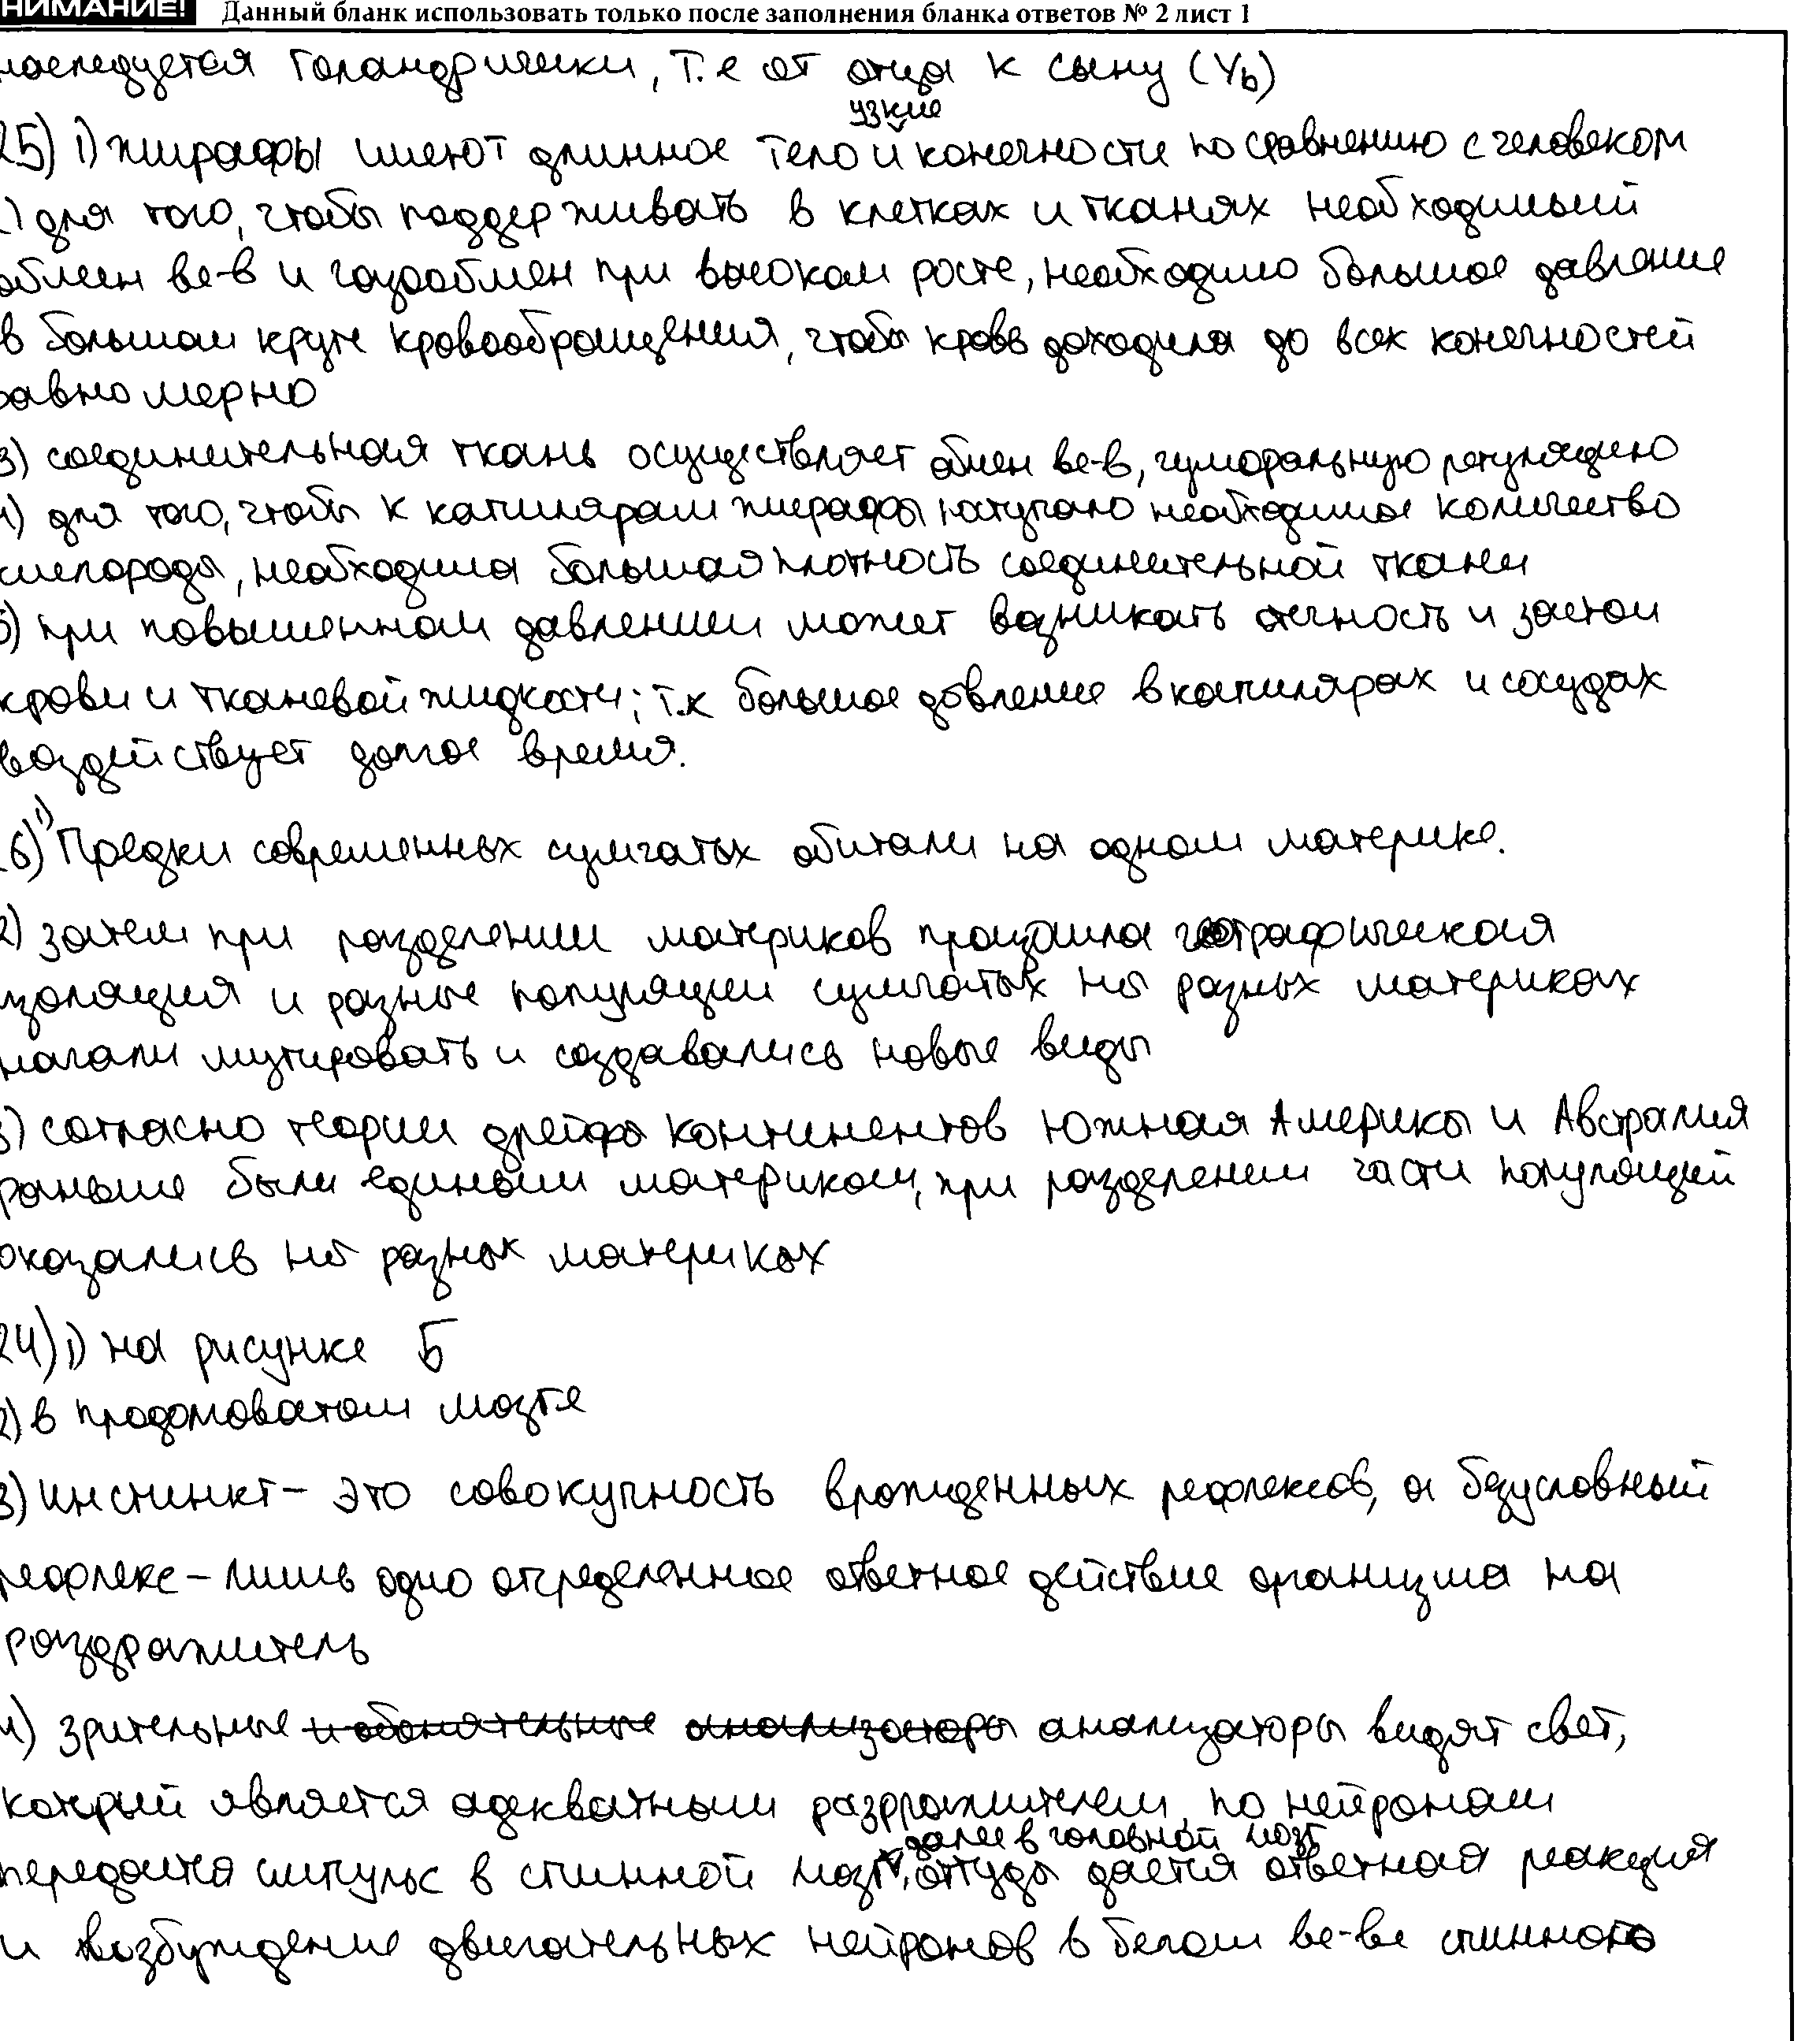 НИМАНИЕ! Данный бланк использовать только после заполнения бланка ответов № 2 лист 1
наследуется голандрически, т.е от отца к сыну (Yb)
узкие
25) 1) жирафы имеют длинное тело и конечности по сравнению с человеком
2) для того, чтобы поддерживать в клетках и тканях необходимый
обмен ве-в и газообмен при высоком росте, необходимо большое давление
в большом круге кровообращения, чтобы кровь доходила до всех конечностей
равномерно
3) соединительная ткань осуществляет обмен ве-в, гуморальную регуляцию
4) для того, чтобы к капилярам жирафы поступало необходимое количество
кислорода, необходима большая плотность соединительной ткани
5) при повышенном давлении может возникать отечность и застои
крови и тканевой жидкости; т.к большое давление в капилярах и сосудах
воздействует долгое время.
26) 1) Предки современных сумчатых обитали на одном материке.
2) затем при разделении материков произошла географическая
изоляция и разные популяции сумчатых на разных материках
начали мутировать и создавались новые виды
3) согласно теории дрейфа континентов Южная Америка и Австралия
раньше были единым материком, при разделении части популяций
оказались на разных материках
24) 1) на рисунке Б
2) в продолговатом мозге
3) инстинкт - это совокупность врожденных рефлексов, а безусловный
рефлекс - лишь одно определенное ответное действие организма на
раздражитель
4) зрительные и обонятельные анализаторы анализаторы видят свет,
который является адекватным раздражителем, по нейронам
далее в головной мозг
передаётся импульс в спинной мозг, оттуда дается ответная реакция
и возбуждение двигательных нейронов в белом ве-ве спинного